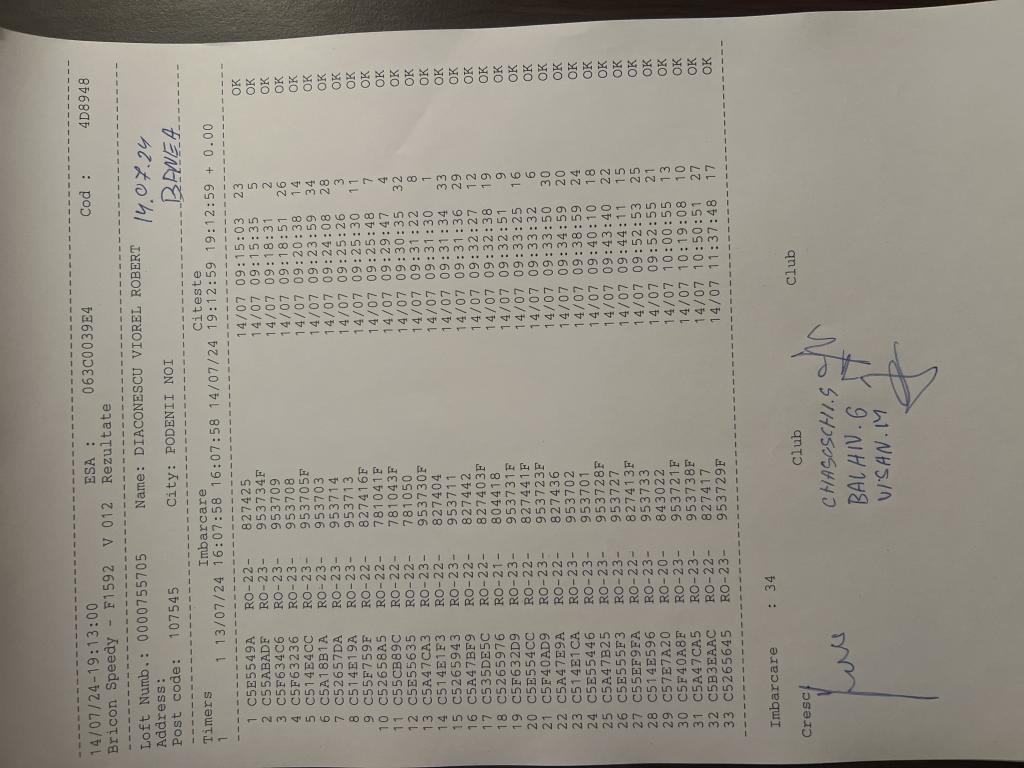 14/07/24-19:13:00
Bricon Speedy - F1592 V 012 ESA : 063C0039E4 Cod : 4D8948
Rezultate
Loft Numb.: 0000755705 Name: DIACONESCU VIOREL ROBERT 14.07.24
Address:
Post code: 107545 City: PODENII NOI BANEA
Timers Imbarcare Citeste
1 1 13/07/24 16:07:58 16:07:58 14/07/24 19:12:59 19:12:59 + 0.00
1 C5E5549A RO-22- 827425 14/07 09:15:03 23 OK
2 C55ABADF RO-23- 953734F 14/07 09:15:35 5 OK
3 C5F634C6 RO-23- 953709 14/07 09:18:31 2 OK
4 C5F63236 RO-23- 953708 14/07 09:18:51 26 OK
5 C514E4CC RO-23- 953705F 14/07 09:20:38 14 OK
6 C5A18B1A RO-23- 953703 14/07 09:23:59 34 OK
7 C52657DA RO-23- 953714 14/07 09:24:08 28 OK
8 C514E19A RO-23- 953713 14/07 09:25:26 3 OK
9 C55F759F RO-22- 827416F 14/07 09:25:30 11 OK
10 C52658A5 RO-22- 781041F 14/07 09:25:48 7 OK
11 C55CB89C RO-22- 781043F 14/07 09:29:47 4 OK
12 C5E55635 RO-22- 781050 14/07 09:30:35 32 OK
13 C5A47CA3 RO-23- 953730F 14/07 09:31:22 8 OK
14 C514E1F3 RO-22- 827404 14/07 09:31:30 1 OK
15 C5265943 RO-23- 953711 14/07 09:31:34 33 OK
16 C5A47BF9 RO-22- 827442 14/07 09:31:36 29 OK
17 C535DE5C RO-22- 827403F 14/07 09:32:27 12 OK
18 C5265976 RO-21- 804418 14/07 09:32:38 19 OK
19 C5F632D9 RO-23- 953731F 14/07 09:32:51 9 OK
20 C5E554CC RO-22- 827441F 14/07 09:33:25 16 OK
21 C5F40AD9 RO-23- 953723F 14/07 09:33:32 6 OK
22 C5A47E9A RO-22- 827436 14/07 09:33:50 30 OK
23 C514E1CA RO-23- 953702 14/07 09:34:59 20 OK
24 C5E55446 RO-23- 953701 14/07 09:38:59 24 OK
25 C5A47B25 RO-23- 953728F 14/07 09:40:10 18 OK
26 C5E555F3 RO-23- 953727 14/07 09:43:40 22 OK
27 C55EF9FA RO-22- 827413F 14/07 09:44:11 15 OK
28 C514E596 RO-23- 953733 14/07 09:52:53 25 OK
29 C57E7A20 RO-20- 843022 14/07 09:52:55 21 OK
30 C5F40A8F RO-23- 953721F 14/07 10:00:55 13 OK
31 C5A47CA5 RO-23- 953738F 14/07 10:19:08 10 OK
32 C5B3EAAC RO-22- 827417 14/07 10:50:51 27 OK
33 C5265645 RO-23- 953729F 14/07 11:37:48 17 OK
Imbarcare : 34
Cresc Club Club
BALHIN.G
VISAN.M